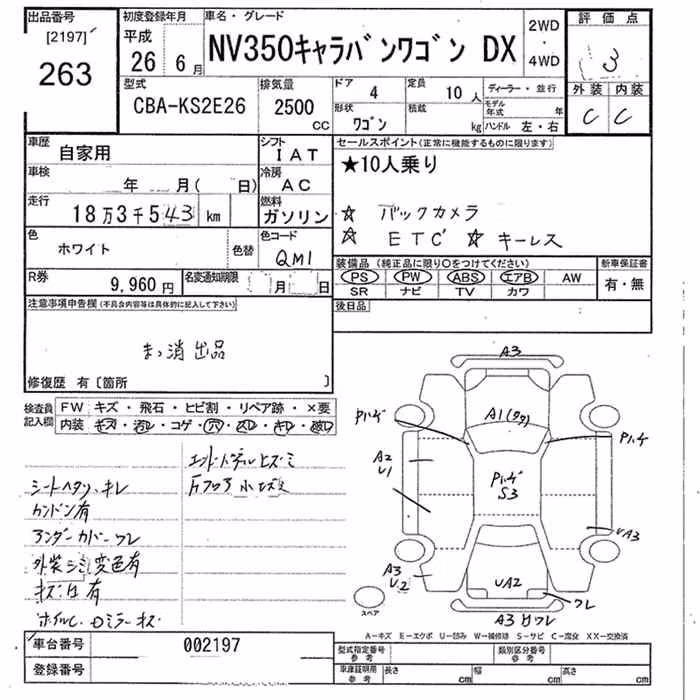 出品番号
[2197]
263
初度登録年月
平成
26 6月
車名・グレード
NV350キャラバンワゴン DX
2WD
・
4WD
評価点
3
外装 内装
C C
型式
CBA-KS2E26
排気量
2500
CC
ドア 4
定員 10人
形状
ワゴン
積載
kg
ディーラー・並行
モデル年式 年
ハンドル 左・右
車歴
自家用
シフト
IAT
車検
年 月( 日)
冷房
AC
走行
18万3千543km
燃料
ガソリン
色
ホワイト
色替
色コード
QM1
R券
9,960円
名変通知期限
月 日
セールスポイント(正常に機能するものに限ります)
★10人乗り
☆ バックカメラ
☆ ETC ☆ キーレス
装備品(純正品に限り○をつけてください)
PS PW ABS エアB AW
SR ナビ TV カワ
新車保証書
有・無
後日品
注意事項申告欄(不具合内容等は具体的に記入して下さい)
まっ消出品
修復歴 有〔箇所 〕
検査員
記入欄
FW キズ・飛石・ヒビ割・リペア跡・×要
内装 キズ・汚レ・コゲ・穴・スレ・キレ・破レ
シートヘタリ・キレ
カンドン有
アンダーカバーワレ
外装シミ変色有
キズ凹有
片フロア小
A3
A1(ワク)
A2
U1
S3
UA3
A3
U2
UA2
ワレ
A3 凹ワレ
スペア
A-キズ E-エクボ U-凹み W-補修跡 S-サビ C-腐食 XX-交換済
車台番号
002197
登録番号
型式指定番号
参考
類別区分番号
参考
車庫証明用
参考
長さ cm
幅 cm
高さ cm